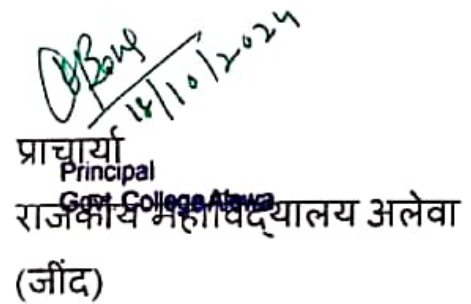 18/10/2024
प्राचार्या
Principal
Govt College Alewa
राजकीय महाविद्यालय अलेवा
(जींद)